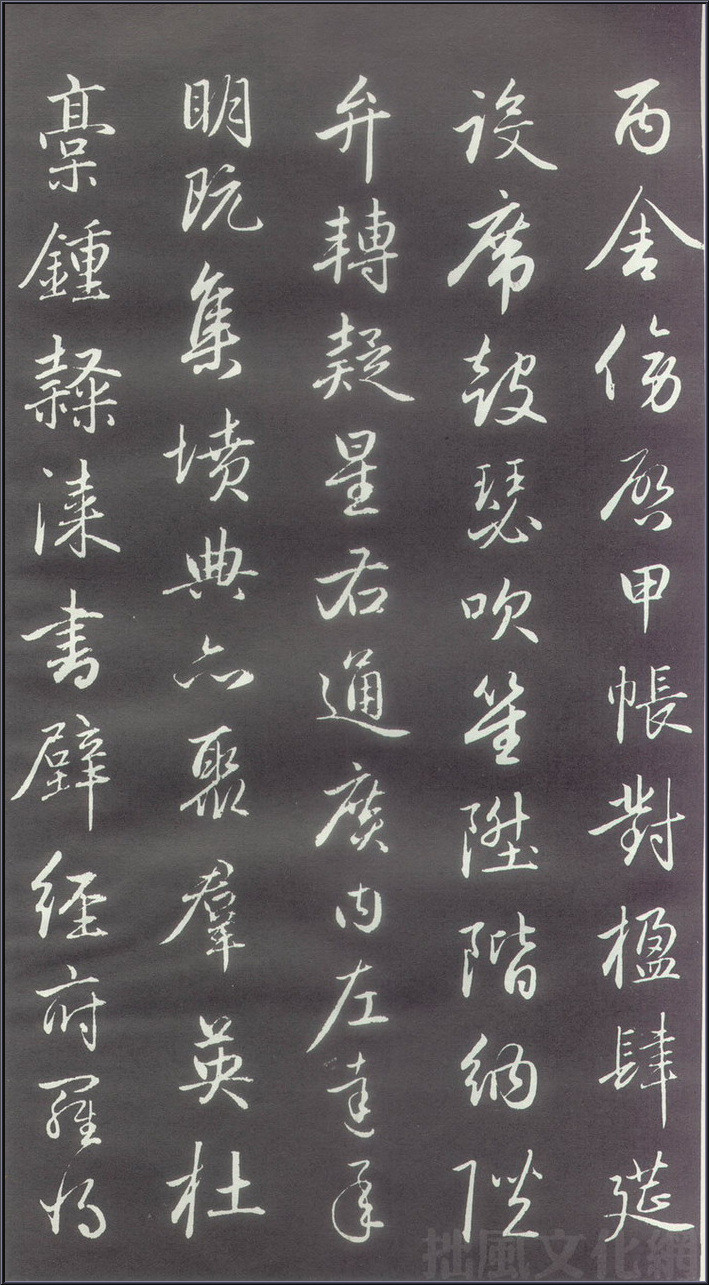 丙舍傍啓甲帳對楹肆筵
設席鼓瑟吹笙陞階納陛
弁轉疑星右通廣內左達承
明既集墳典亦聚群英杜
稾鍾隸漆書壁經府羅將
拙風文化網